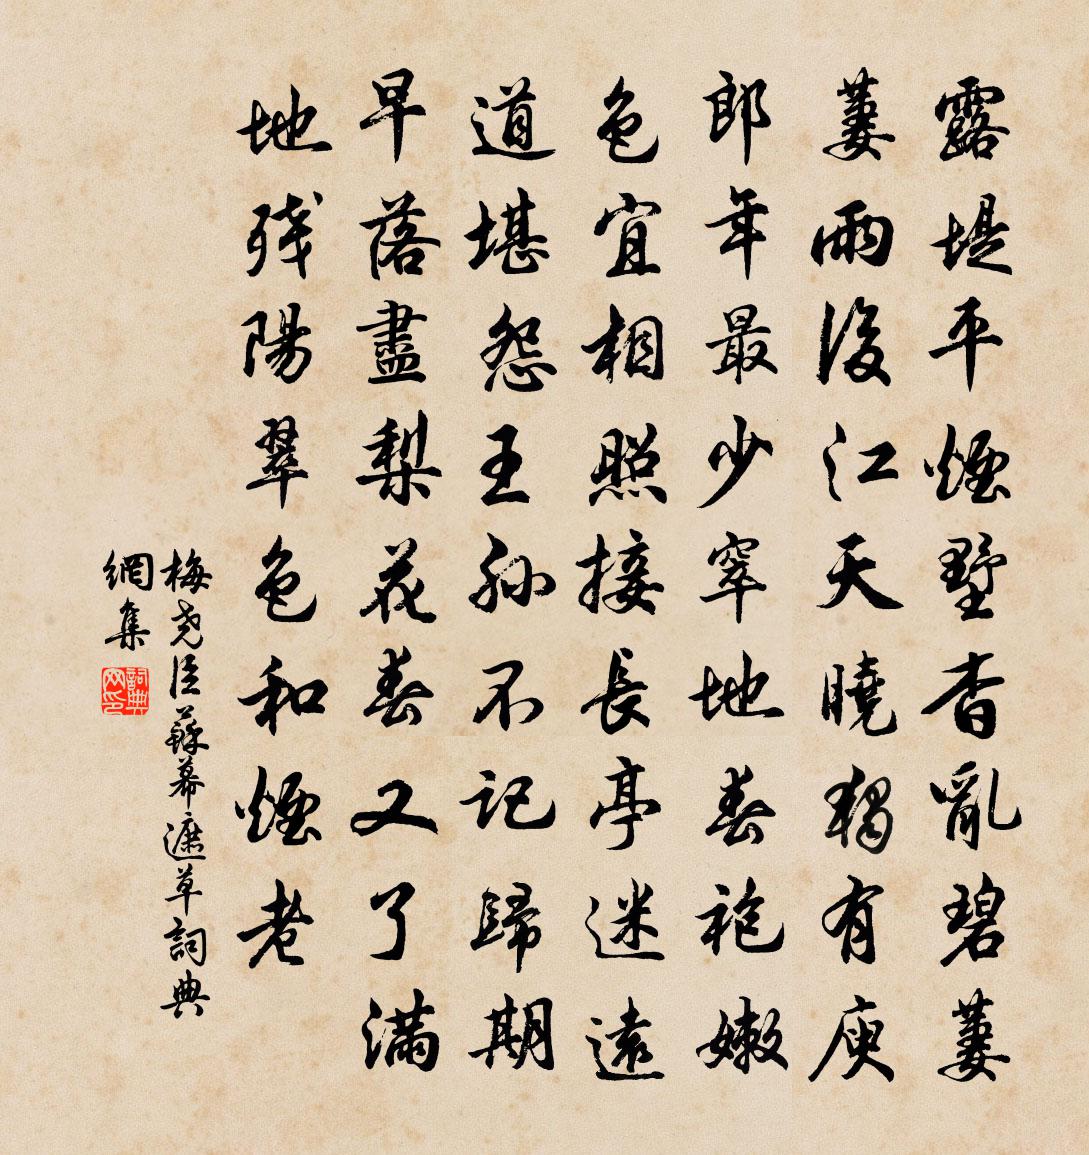 露堤平煙墅杳亂碧萋
萋雨後江天曉獨有庾
郎年最少窣地春袍嫩
色宜相照接長亭迷遠
道堪怨王孫不記歸期
早落盡梨花春又了滿
地残陽翠色和煙老
梅尧臣蘇幕遮草詞典
網集
詞典
网印